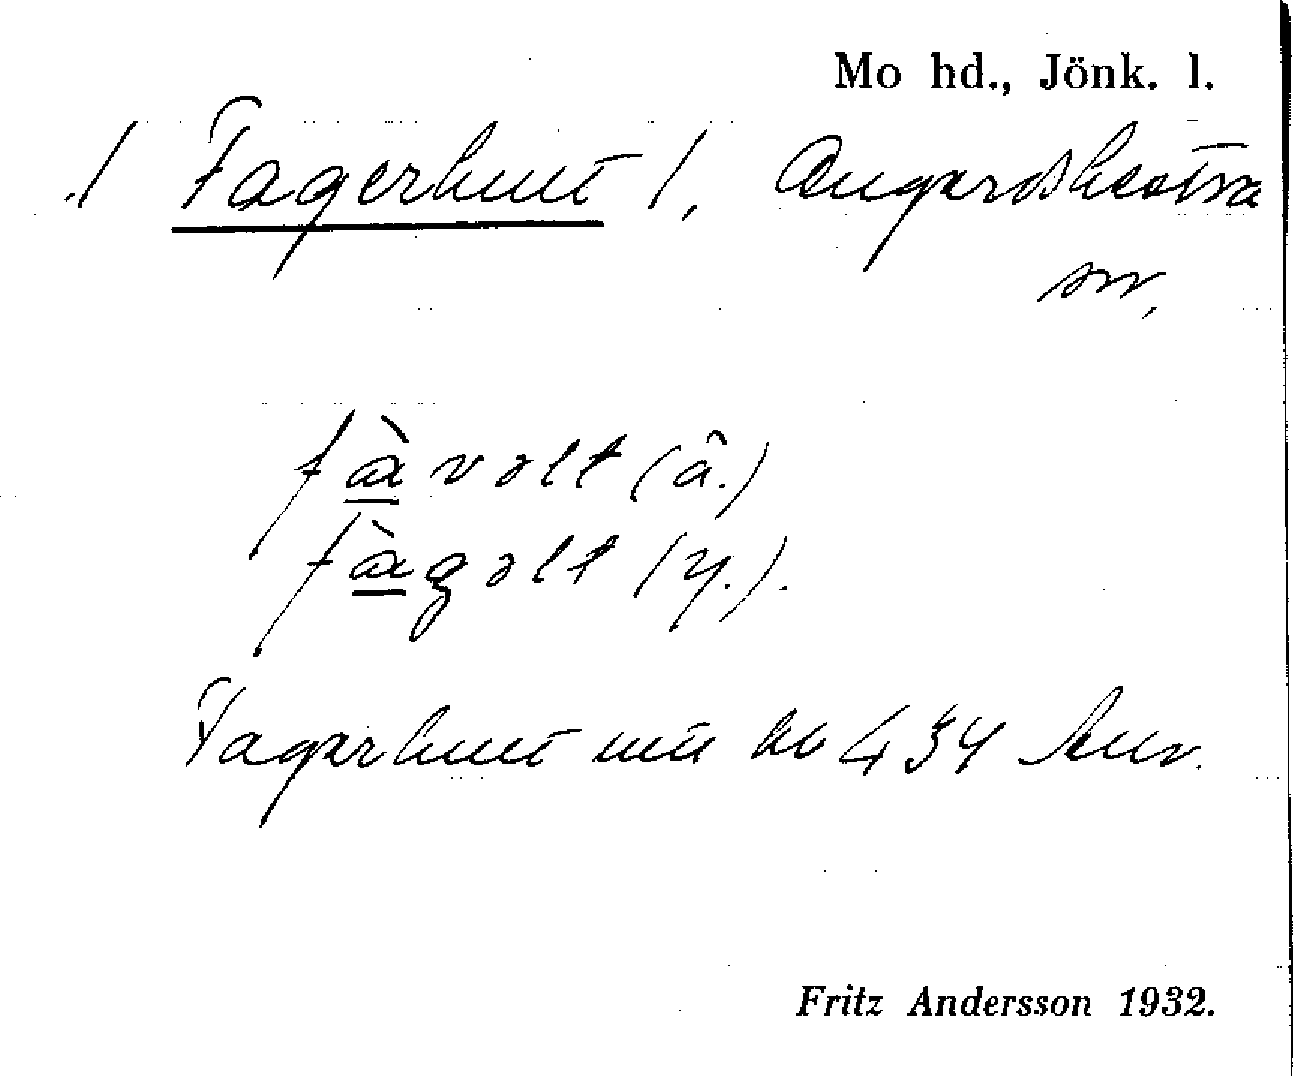 Mo hd., Jönk. l.
/ Fagerhult /, Ångerdshestra
sn,
fàvəlt (ä.)
fàgəlt (y.).
Fagerhult
Fritz Andersson 1932.